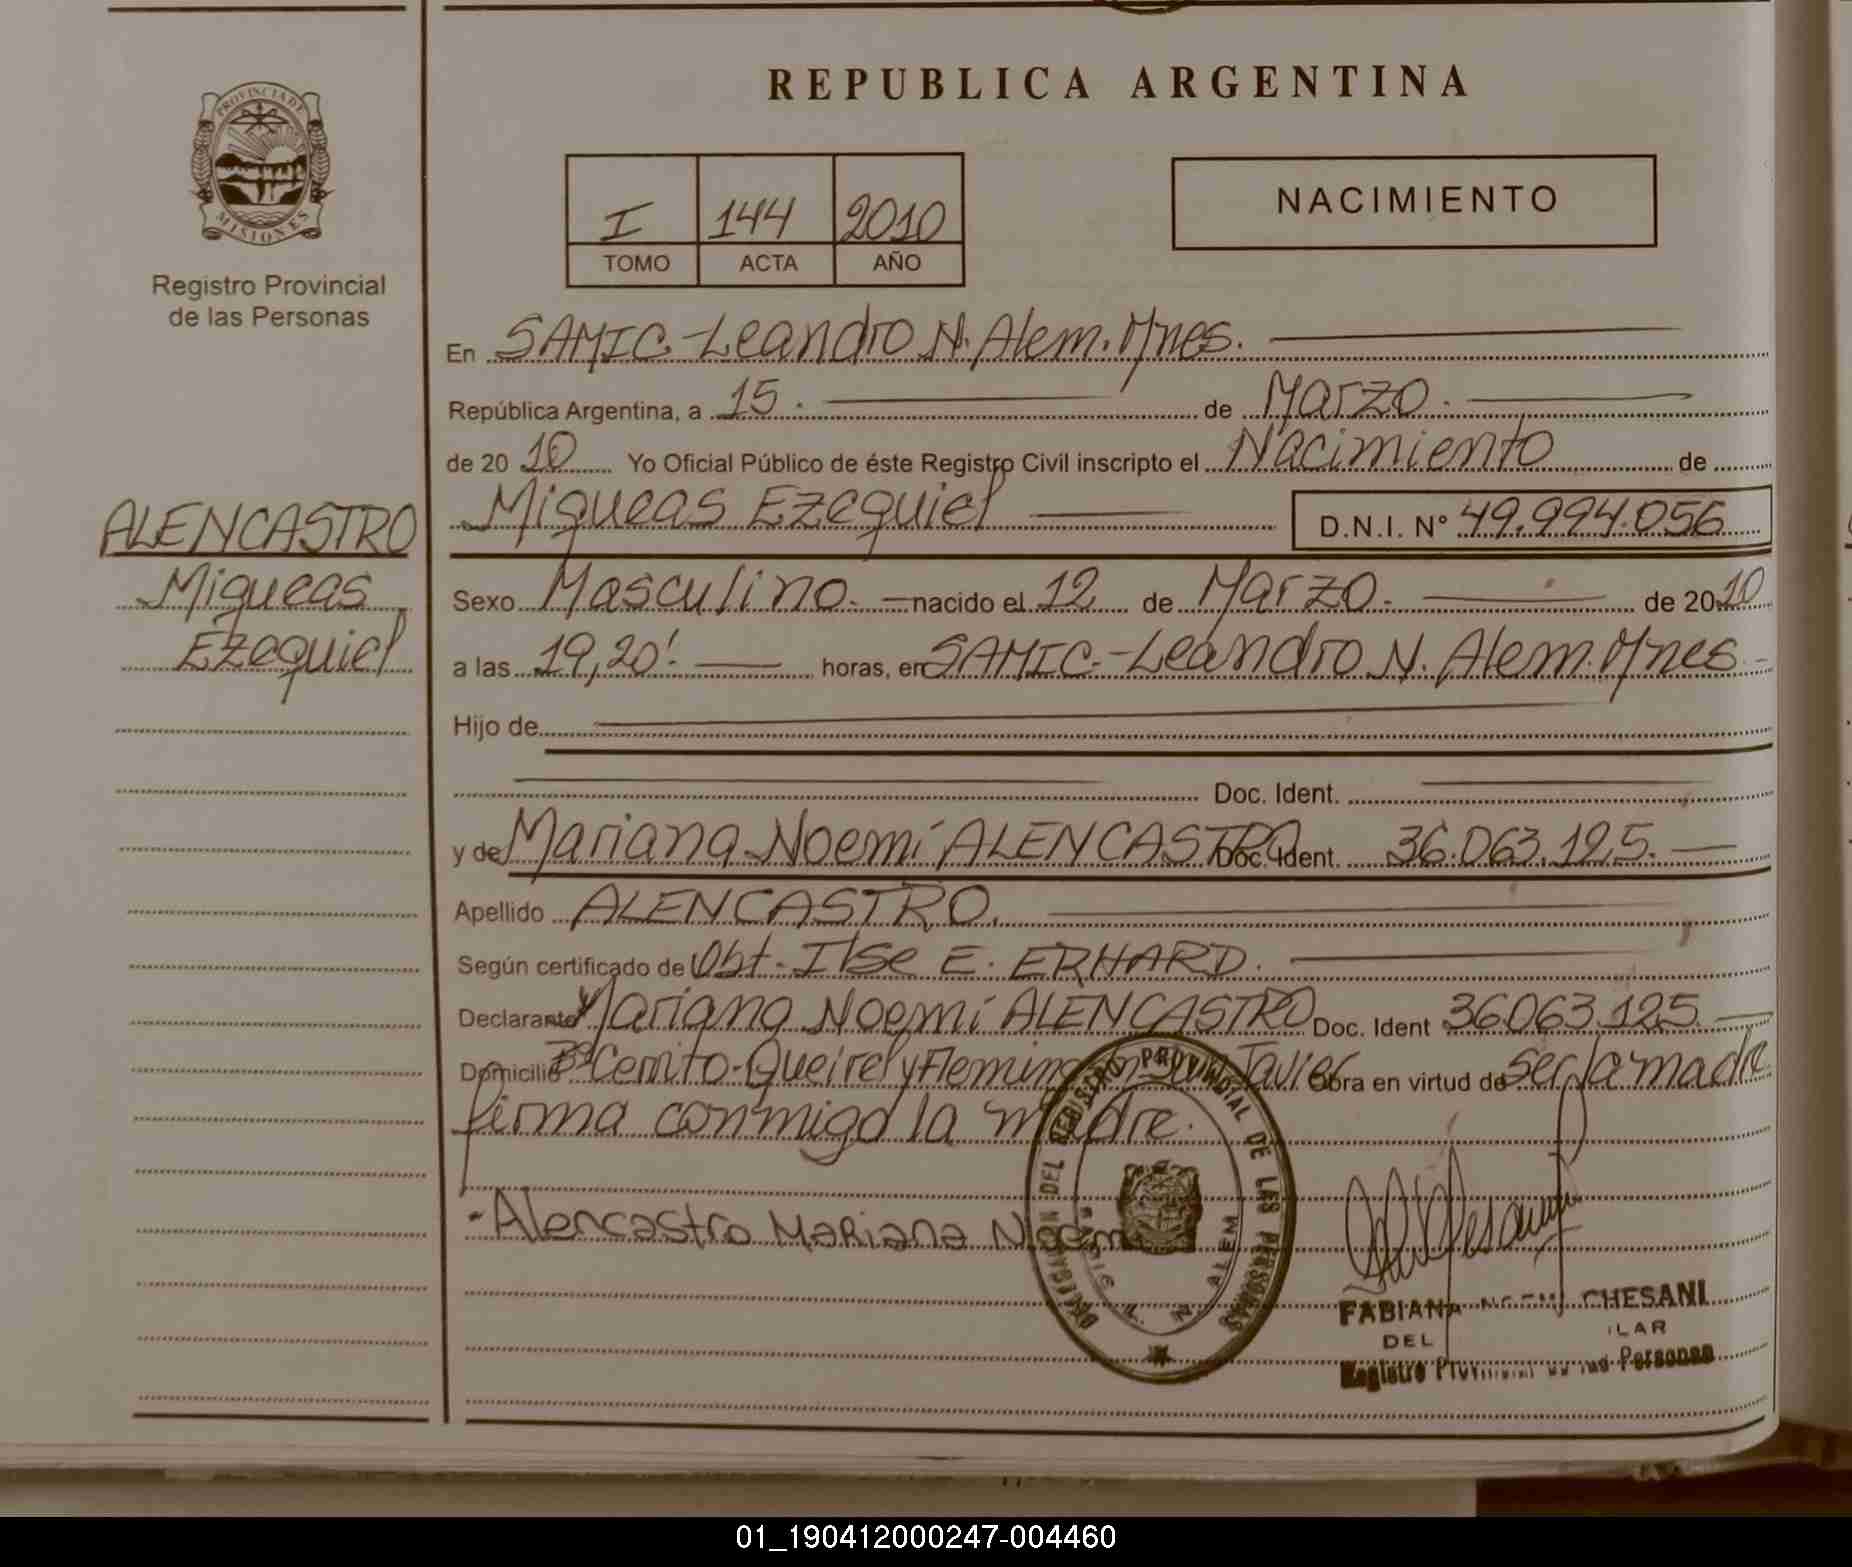 REPUBLICA ARGENTINA
PROVINCIA DE
MISIONES
Registro Provincial
de las Personas
I 144 2010
TOMO ACTA AÑO
NACIMIENTO
En SAMIC-Leandro N. Alem. Mnes.
República Argentina, a 15. de Marzo.
de 2010 Yo Oficial Público de éste Registro Civil inscripto el Nacimiento de
Miqueas Ezequiel D.N.I. N° 49.994.056
ALENCASTRO
Miqueas
Ezequiel
Sexo Masculino. nacido el 12 de Marzo. de 2010
a las 19,20'. horas, en SAMIC.-Leandro N. Alem. Mnes.
Hijo de
Doc. Ident.
y de Mariana Noemí ALENCASTRO Doc. Ident. 36.063.125.
Apellido ALENCASTRO.
Según certificado de Obt. Ilse E. ERHARD.
Declarante Mariana Noemí ALENCASTRO Doc. Ident 36.063.125.
Domicilio B° Cerrito-Queirel y Fleming Javier Obra en virtud de ser la madre
firma conmigo la madre.
Alencastro Mariana Noemi
DEL REGISTRO PROVINCIAL DE LAS PERSONAS
L. N. ALEM
FABIANA NOEMI CHESANI
DEL
Registro Provincial de las Personas
01_190412000247-004460